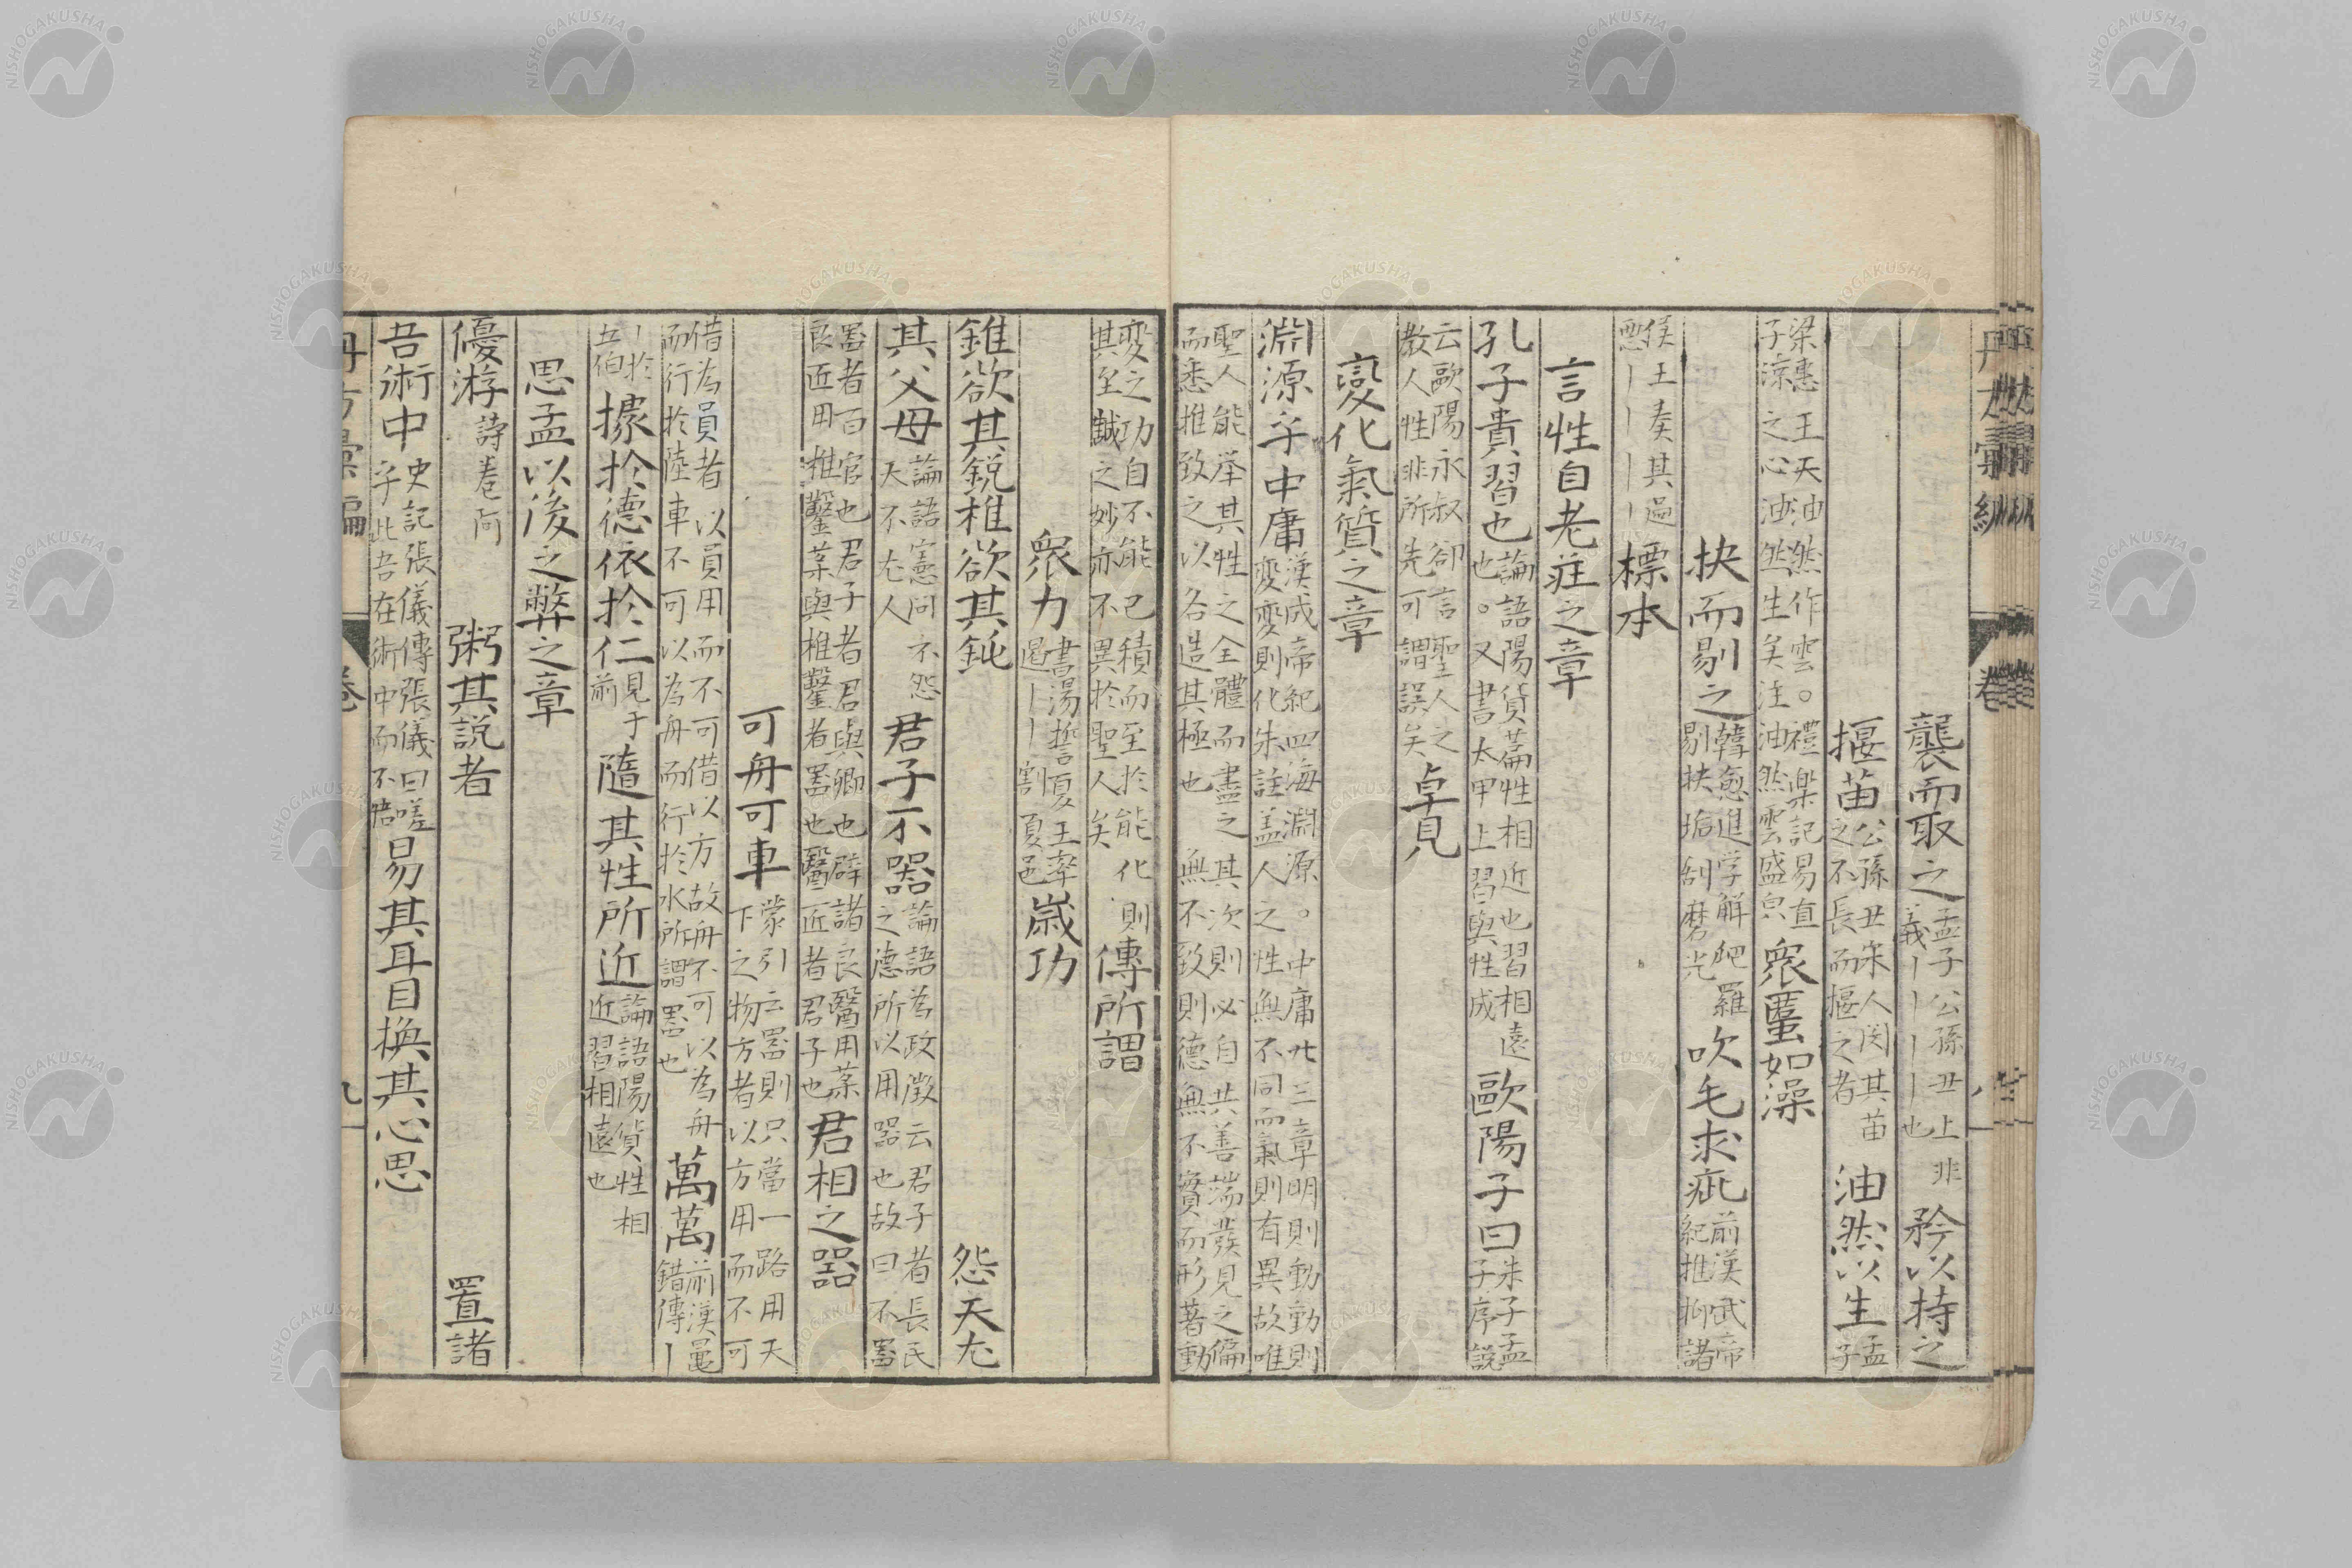 襲而取之 孟子公孫丑上非義丨丨丨丨也 矜以持之
揠苗 公孫丑宋人閔其苗之不長而揠之者 油然以生 孟子
梁惠王天油然作雲。禮樂記易直子涼之心油然生矣注油然雲盛皃 衆䘍如澡
抉而剔之 韓愈進学解爬羅剔抉垢刮磨光 吹毛求疵 前漢武帝紀推抑諸
侯王奏其過悪丨丨丨丨 標本
言性自老莊之章
孔子貴習也 論語陽貨萹性相近也習相遠也。又書太甲上習與性成 歐陽子曰 朱子孟子序說
云歐陽永叔卻言聖人之教人性非所先可謂誤矣 卓見
變化氣質之章
淵源乎中庸 漢成帝紀四海淵源。中庸廿三章明則動動則変変則化朱註盖人之性無不同而氣則有異故唯
聖人能举其性之全體而盡之其次則必自其善端發見之偏而悉推致之以各造其極也無不致則德無不實而形著動
変之功自不能已積而至於能化則其至誠之妙亦不異於聖人矣 傳所謂
衆力 書湯誓夏王率遏丨丨割夏邑 嵗功
錐欲其鋭椎欲其鈍 怨天尤
其父母 論語憲问不怨天不尤人 君子不器 論語為政徴云君子者長民之德所以用器也故曰不噐
噐者百官也君子者君與卿也辟諸良醫用薬良匠用推鑿薬與椎鑿者噐也醫匠者君子也 君相之器
可舟可車 蒙引云噐則只當一路用天下之物方者以方用而不可
借為員者以員用而不可借以方故舟不可以為舟而行於陸車不可以為舟而行於水所謂噐也 萬萬 前漢鼂錯傳丨
丨於五伯 據於德依於仁 見于前 隨其性所近 論語陽貨性相近習相遠也
思孟以後之弊之章
優游 詩卷阿 粥其説者 置諸
吾術中 史記張儀傳張儀曰嗟乎此吾在術中而不悟 易其耳目換其心思